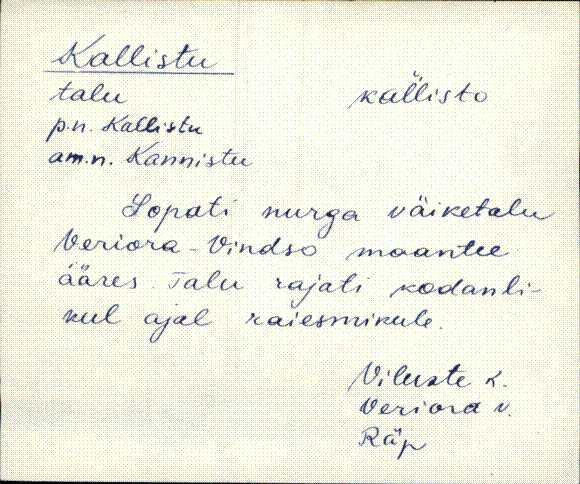 Kallistu
talu källisto
p.n. Kallistu
am.n. Kannistu
Lopati nurga väiketalu
Veriora-Vindso maantee
ääres. Talu rajati kodanli-
kul ajal raiesmikule.
Viluste k.
Veriora v.
Räp